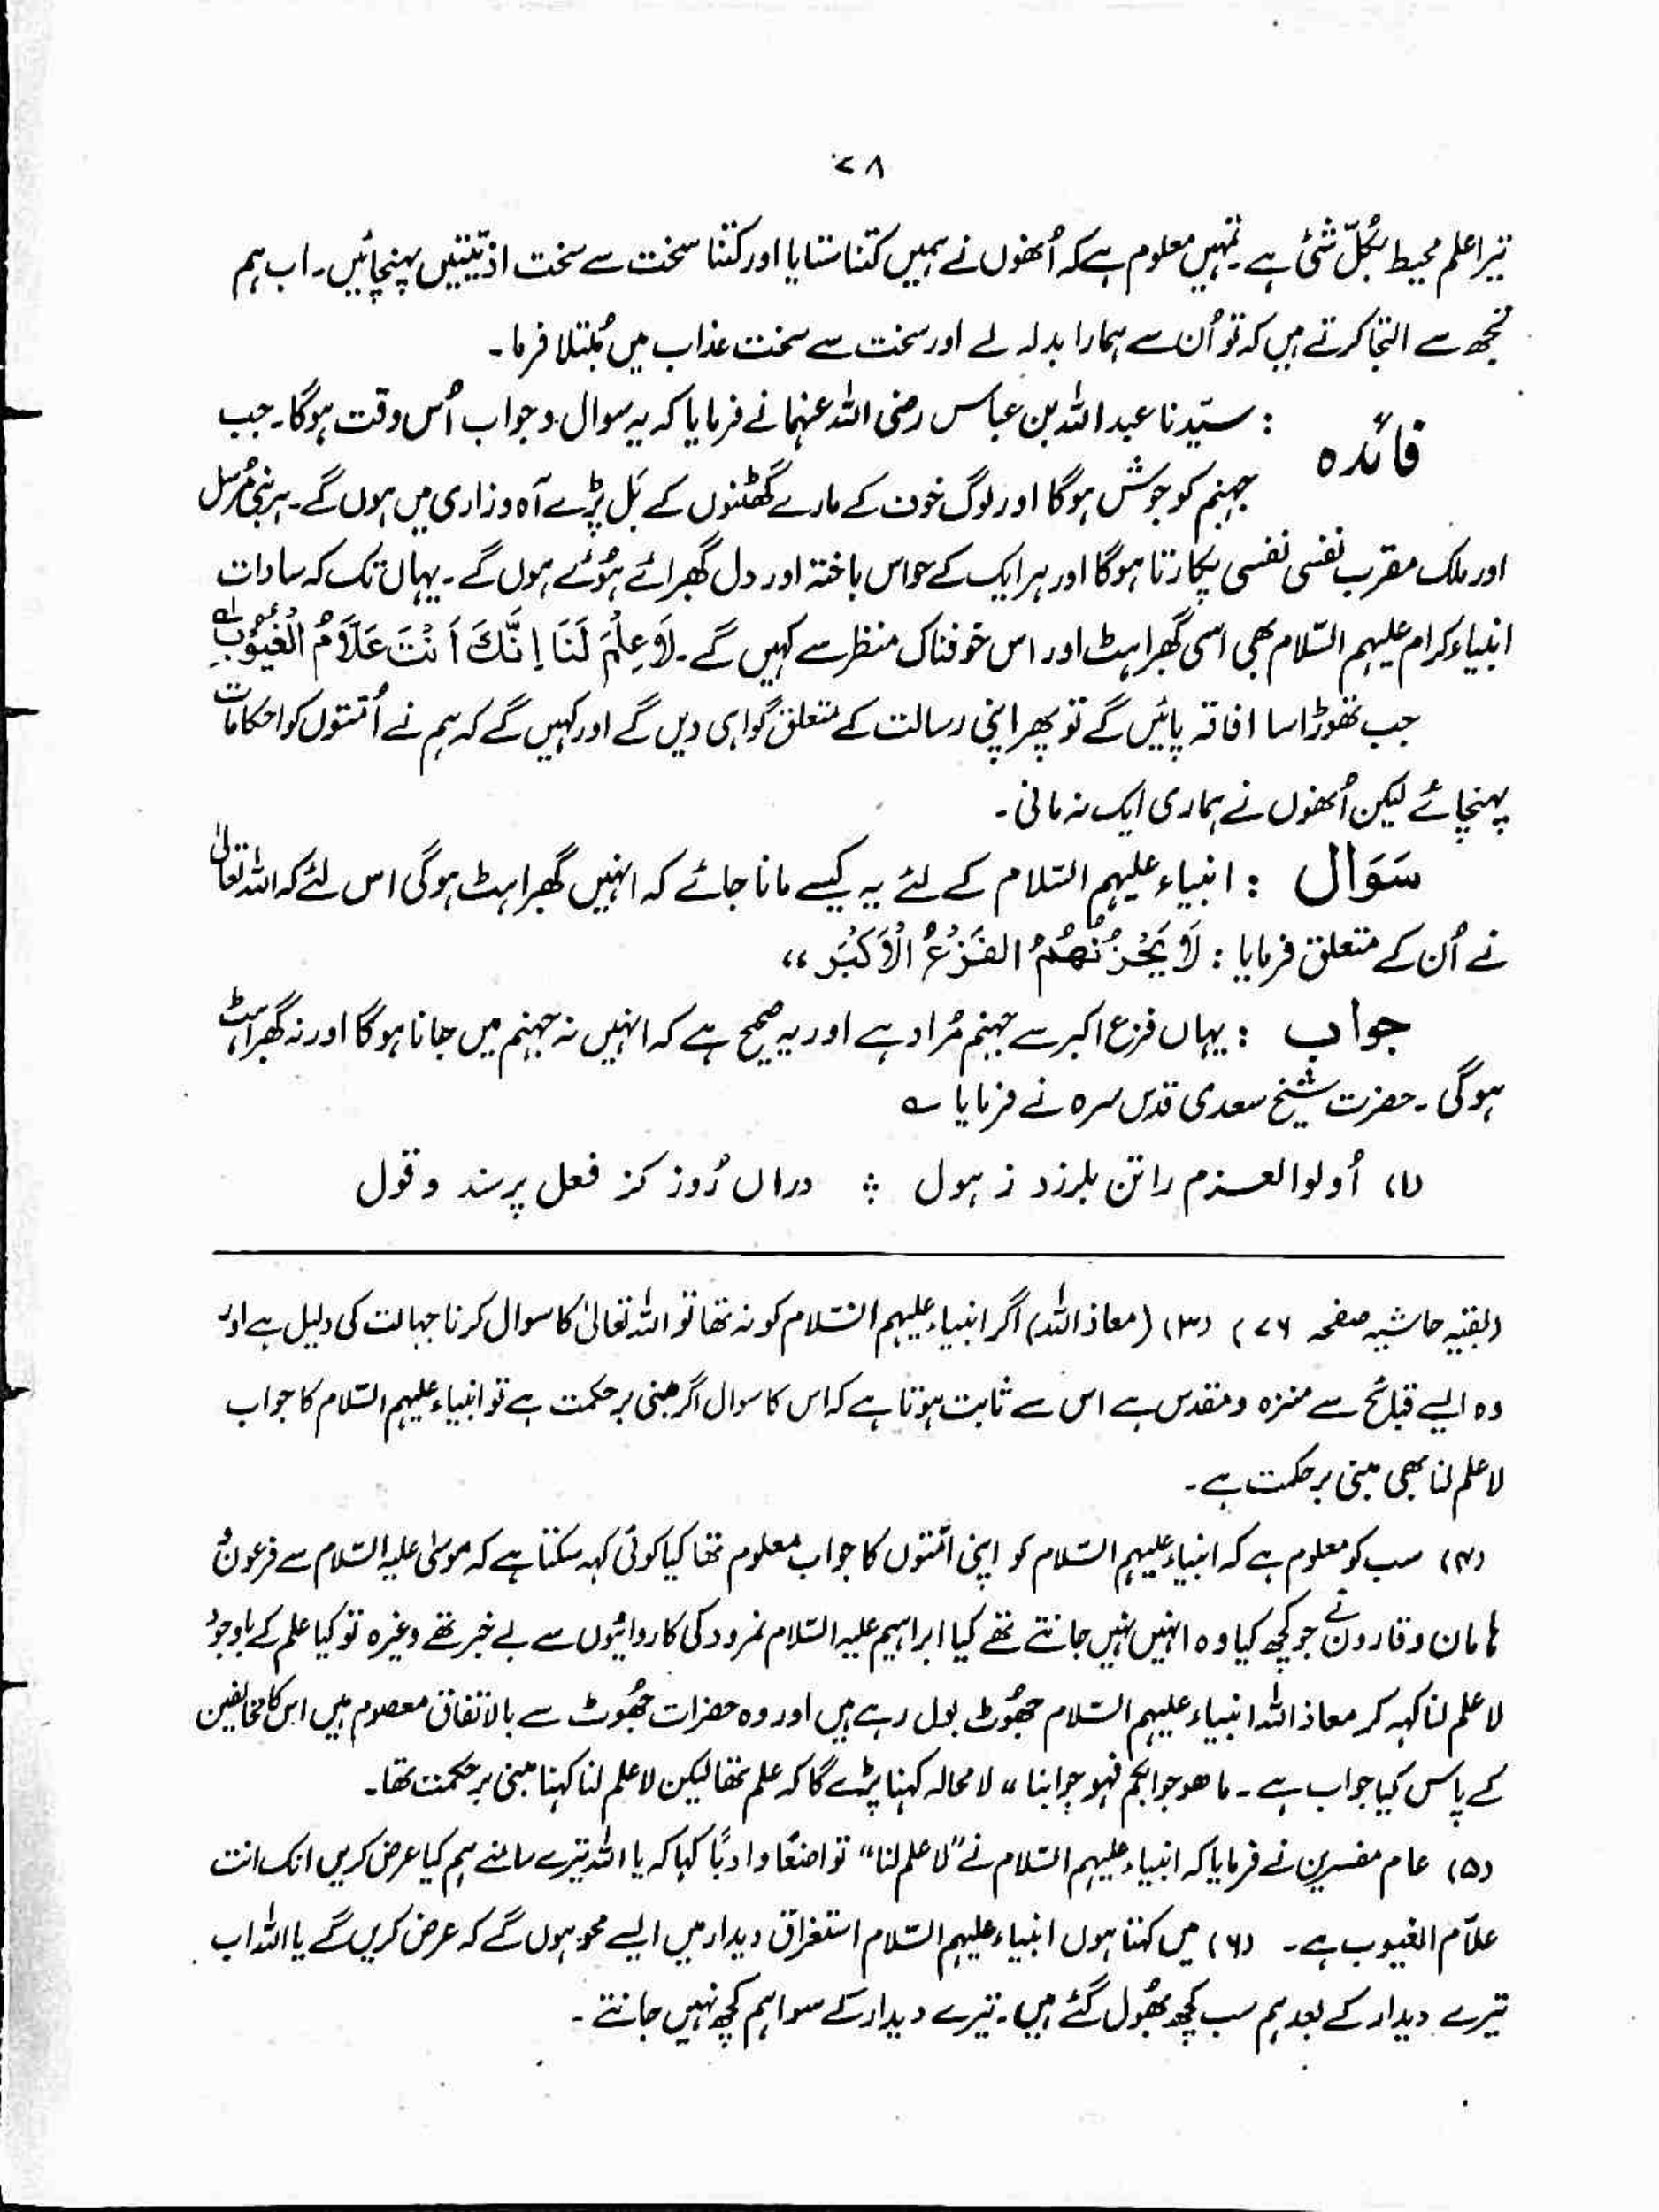 ۷۸
تیرا علم محیط بکُلِّ شئ ہے تمہیں معلوم ہے کہ اُنھوں نے ہمیں کتنا ستایا اور کتنا سخت سے سخت اذیّتیں پہنچائیں۔ اب ہم
تجھ سے التجا کرتے ہیں کہ تو اُن سے ہمارا بدلہ لے اور سخت سے سخت عذاب میں مُبتلا فرما۔
فائدہ : سیّدنا عبداللہ بن عباس رضی اللہ عنہما نے فرمایا کہ یہ سوال و جواب اُس وقت ہوگا۔ جب
جہنم کو جوش ہوگا اور لوگ خوف کے مارے گھٹنوں کے بَل پڑے آہ و زاری میں ہوں گے۔ ہر نبی مُرسل
اور ملک مقرب نفسی نفسی پکارتا ہوگا اور ہر ایک کے حواس باختہ اور دل گھبرائے ہُوئے ہوں گے۔ یہاں تک کہ سادات
انبیاء کرام علیہم السّلام بھی اسی گھبراہٹ اور اس خوفناک منظر سے کہیں گے۔ لَا عِلْمَ لَنَا اِنَّكَ اَنْتَ عَلَّامُ الْغُيُوْبِ
جب تھوڑا سا افاقہ پائیں گے تو پھر اپنی رسالت کے متعلق گواہی دیں گے اور کہیں گے کہ ہم نے اُمتوں کو احکامات
پہنچائے لیکن اُنھوں نے ہماری ایک نہ مانی۔
سَوَال : انبیاء علیہم السّلام کے لئے یہ کیسے مانا جائے کہ انہیں گھبراہٹ ہوگی اس لئے کہ اللہ تعالیٰ
نے اُن کے متعلق فرمایا : لَا يَحْزُنُهُمُ الفَزَعُ الْاَكْبَرُ ،،
جواب : یہاں فزع اکبر سے جہنم مُراد ہے اور یہ صحیح ہے کہ انہیں نہ جہنم میں جانا ہوگا اور نہ گھبراہٹ
ہوگی۔ حضرت شیخ سعدی قدس سرہ نے فرمایا ؎
(۱) اُولوا العزم را تن بلرزد ز ہول ؞ دراں رُوز کز فعل پرسند و قول
(بقیہ حاشیہ صفحہ ۷۶) (۳) (معاذ اللہ) اگر انبیاء علیہم السّلام کو نہ تھا تو اللہ تعالیٰ کا سوال کرنا جہالت کی دلیل ہے اور
وہ ایسے قبائح سے منزہ و مقدس ہے اس سے ثابت ہوتا ہے کہ اس کا سوال اگر مبنی بر حکمت ہے تو انبیاء علیہم السّلام کا جواب
لا علم لنا بھی مبنی بر حکمت ہے۔
(۴) سب کو معلوم ہے کہ انبیاء علیہم السّلام کو اپنی امّتوں کا جواب معلوم تھا کیا کوئی کہہ سکتا ہے کہ موسیٰ علیہ السّلام سے فرعون
ہامان و قارون نے جو کچھ کیا وہ انہیں نہیں جانتے تھے کیا ابراہیم علیہ السّلام نمرود کی کاروائیوں سے بے خبر تھے وغیرہ تو کیا علم کے باوجود
لا علم لنا کہہ کر معاذ اللہ انبیاء علیہم السّلام جھُوٹ بول رہے ہیں اور وہ حضرات جھُوٹ سے بالاتفاق معصوم ہیں اس کا مخالفین
کے پاس کیا جواب ہے۔ ما ھو جوابکم فہو جوابنا ،، لا محالہ کہنا پڑے گا کہ علم تھا لیکن لا علم لنا کہنا مبنی بر حکمت تھا۔
(۵) عام مفسرین نے فرمایا کہ انبیاء علیہم السّلام نے ”لا علم لنا“ تواضعًا و ادبًا کہا کہ یا اللہ تیرے سامنے ہم کیا عرض کریں انک انت
علاّم الغیوب ہے۔ (۶) میں کہتا ہوں انبیاء علیہم السّلام استغراق دیدار میں ایسے محو ہوں گے کہ عرض کریں گے یا اللہ اب
تیرے دیدار کے بعد ہم سب کچھ بھُول گئے ہیں۔ تیرے دیدار کے سوا ہم کچھ نہیں جانتے۔